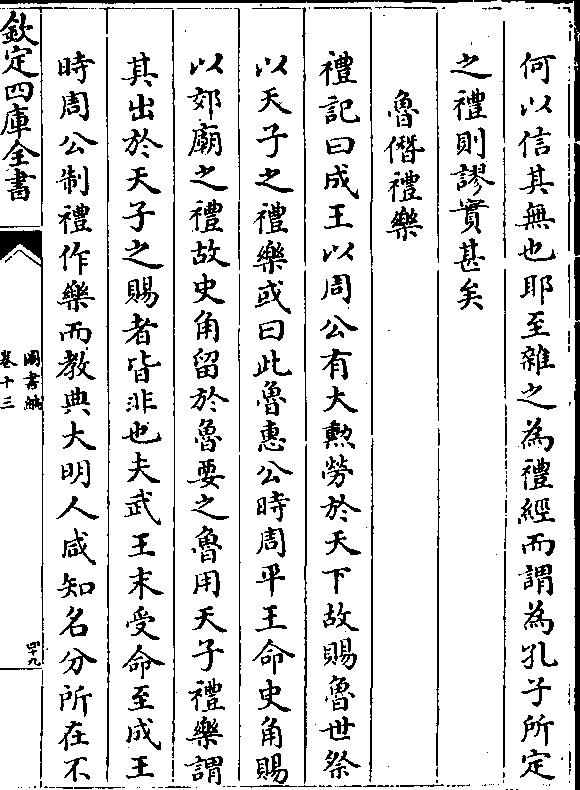 何以信其無也耶至雜之為禮經而謂為孔子所定
之禮則謬實甚矣
魯僭禮樂
禮記曰成王以周公有大勲勞於天下故賜魯世祭
以天子之禮樂或曰此魯惠公時周平王命史角賜
以郊廟之禮故史角留於魯要之魯用天子禮樂謂
其出於天子之賜者皆非也夫武王末受命至成王
時周公制禮作樂而教典大明人咸知名分所在不
欽定四庫全書
圖書編
卷十三
四十九